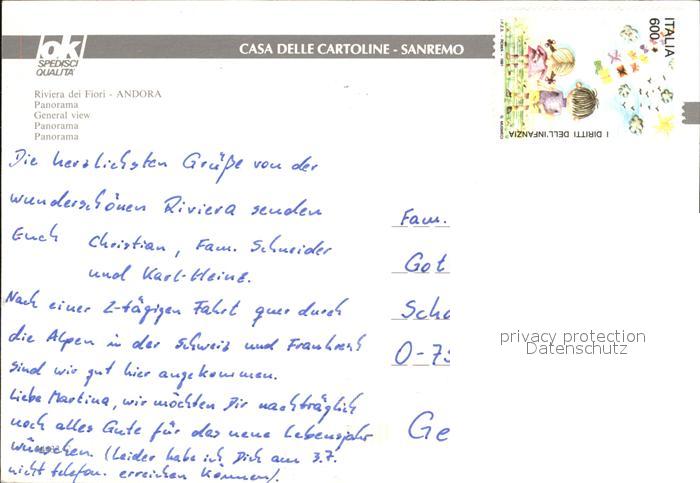 ok
SPEDISCI
QUALITA'
CASA DELLE CARTOLINE - SANREMO
ITALIA
600
I DIRITTI DELL'INFANZIA
Riviera dei Fiori - ANDORA
Panorama
General view
Panorama
Panorama
Die herzlichsten Grüße von der
wunderschönen Riviera senden
Euch Christian, Fam. Schneider
und Karl-Heinz.
Nach einer 2-tägigen Fahrt quer durch
die Alpen in der Schweiz und Frankreich
sind wir gut hier angekommen.
Liebe Martina, wir möchten Dir nachträglich
noch alles Gute für das neue Lebensjahr
wünschen. (Leider habe ich Dich am 3.7.
nicht telefon. erreichen können).
Fam.
Got
Sch
O-7
Ge
privacy protection
Datenschutz